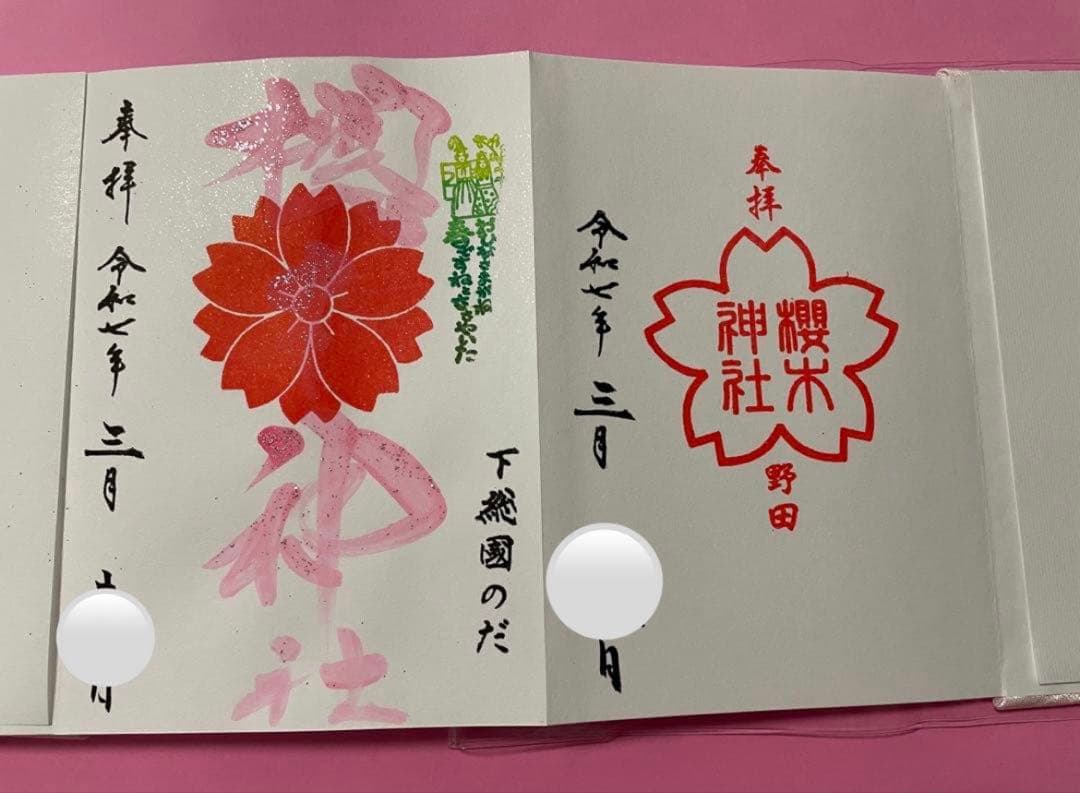 奉拝
櫻木
神社
野田
令和七年 三月 日
下総國のだ
櫻木神社
奉拝 令和七年 三月 日